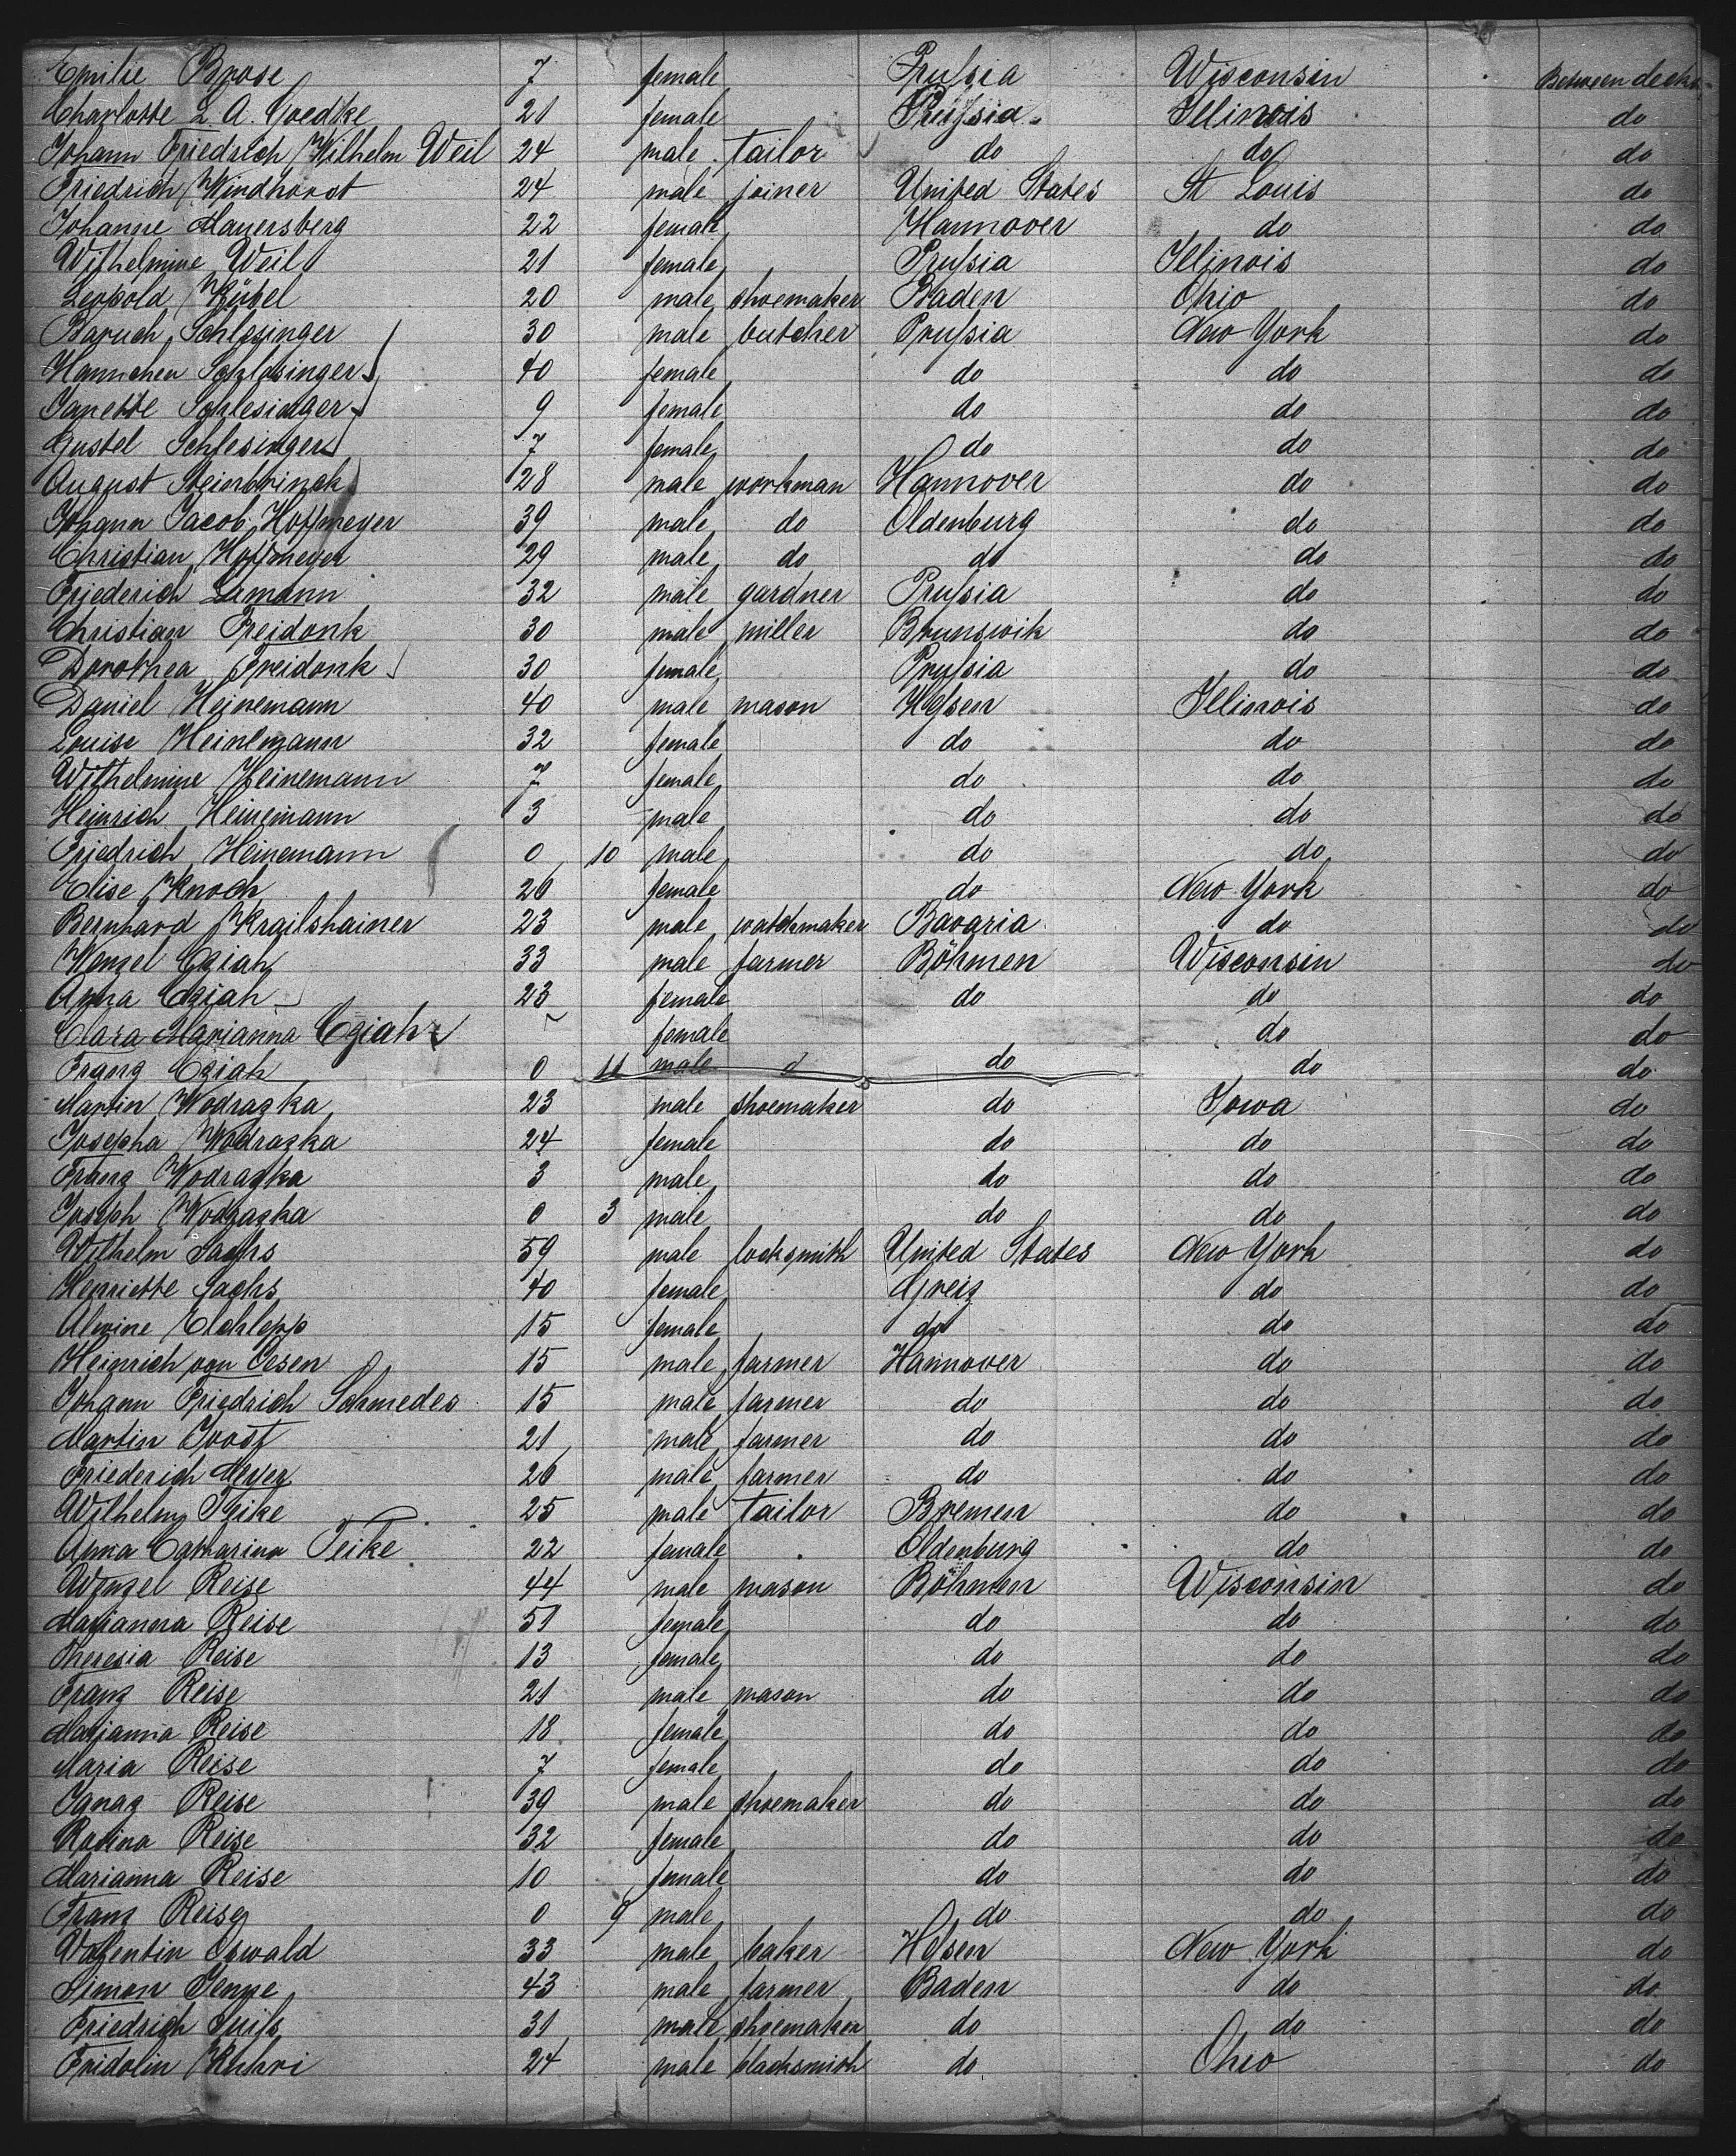 Emilie Brose 7 female Prussia Wisconsin Between decks
Charlotte L. A. Goedke 21 female Prussia Illinois do
Johann Friedrich Wilhelm Weil 24 male tailor do do do
Friedrich Windhorst 24 male joiner United States St Louis do
Johanne Mayersberg 22 female Hannover do do
Wilhelmine Weil 21 female Prussia Illinois do
Leopold Kübel 20 male shoemaker Baden Ohio do
Baruch Schlesinger 30 male butcher Prussia New York do
Hannchen Schlesinger 40 female do do do
Janette Schlesinger 9 female do do do
Gustel Schlesinger 7 female do do do
August Steinbrinck 28 male workman Hannover do do
Johann Jacob Hoffmeyer 39 male do Oldenburg do do
Christian Hoffmeyer 29 male do do do do
Friederich Lamann 32 male gardner Prussia do do
Christian Freidank 30 male miller Brunswik do do
Dorothea Freidank 30 female Prussia do do
Daniel Heinemann 40 male mason Hessen Illinois do
Louise Heinemann 32 female do do do
Wilhelmine Heinemann 7 female do do do
Heinrich Heinemann 3 male do do do
Friedrich Heinemann 0 10 male do do do
Elise Knoch 26 female do New York do
Bernhard Krailshainer 23 male watchmaker Bavaria do do
Wenzel Cziah 33 male farmer Böhmen Wisconsin do
Anna Cziah 23 female do do do
Clara Marianna Cziah female do do
Franz Cziah 0 11 male do do do
Martin Wodrazka 23 male shoemaker do Iowa do
Josepha Wodrazka 24 female do do do
Franz Wodrazka 3 male do do do
Joseph Wodrazka 0 3 male do do do
Wilhelm Sachs 59 male locksmith United States New York do
Henriette Sachs 40 female Greiz do do
Alwine 15 female do do do
Heinrich von Oesen 15 male farmer Hannover do do
Johann Friedrich Schmedes 15 male farmer do do do
Martin Joost 21 male farmer do do do
Friederich Meyer 26 male farmer do do do
Wilhelm Teike 25 male tailor Bremen do do
Anna Catharina Teike 22 female Oldenburg do do
Wenzel Reise 44 male mason Böhmen Wisconsin do
Marianna Reise 51 female do do do
Theresia Reise 13 female do do do
Franz Reise 21 male mason do do do
Marianna Reise 18 female do do do
Maria Reise 7 female do do do
Ignaz Reise 39 male shoemaker do do do
Rosina Reise 32 female do do do
Marianna Reise 10 female do do do
Franz Reise 0 9 male do do do
Valentin Oswald 33 male baker Hessen New York do
Simon Jenne 43 male farmer Baden do do
Friedrich 31 male shoemaker do do do
Fridolin 24 male blacksmith do Ohio do